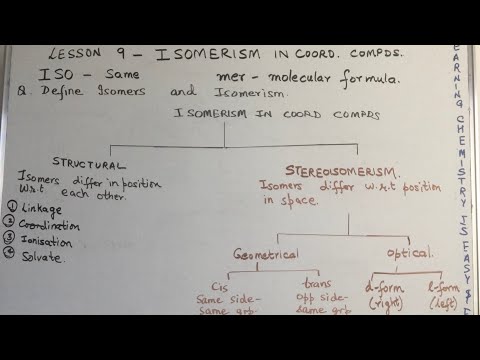 LESSON 9 - ISOMERISM IN COORD. COMPDS.
ISO - Same mer - molecular formula.
Q. Define Isomers and Isomerism.
ISOMERISM IN COORD COMPDS
STRUCTURAL
Isomers differ in position
w.r.t each other.
① Linkage
② Coordination
③ Ionisation
④ Solvate.
STEREOISOMERISM.
Isomers differ w.r.t position
in space.
Geometrical
Optical.
Cis
Same side-
Same grp.
trans
Opp side-
Same grp
d-form
(right)
l-form
(left)
EARNING CHEMISTRY IS EASY